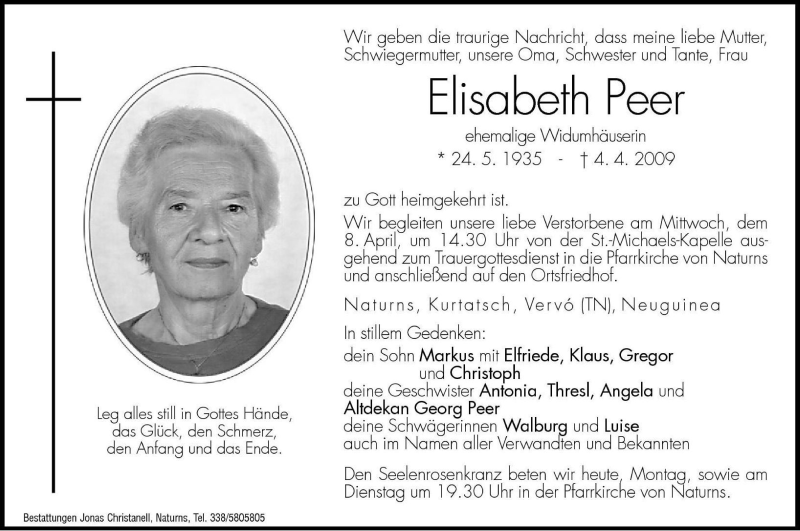 Wir geben die traurige Nachricht, dass meine liebe Mutter,
Schwiegermutter, unsere Oma, Schwester und Tante, Frau
Elisabeth Peer
ehemalige Widumhäuserin
* 24. 5. 1935 - † 4. 4. 2009
zu Gott heimgekehrt ist.
Wir begleiten unsere liebe Verstorbene am Mittwoch, dem
8. April, um 14.30 Uhr von der St.-Michaels-Kapelle aus-
gehend zum Trauergottesdienst in die Pfarrkirche von Naturns
und anschließend auf den Ortsfriedhof.
Naturns, Kurtatsch, Vervó (TN), Neuguinea
In stillem Gedenken:
dein Sohn Markus mit Elfriede, Klaus, Gregor
und Christoph
deine Geschwister Antonia, Thresl, Angela und
Altdekan Georg Peer
deine Schwägerinnen Walburg und Luise
auch im Namen aller Verwandten und Bekannten
Den Seelenrosenkranz beten wir heute, Montag, sowie am
Dienstag um 19.30 Uhr in der Pfarrkirche von Naturns.
Leg alles still in Gottes Hände,
das Glück, den Schmerz,
den Anfang und das Ende.
Bestattungen Jonas Christanell, Naturns, Tel. 338/5805805